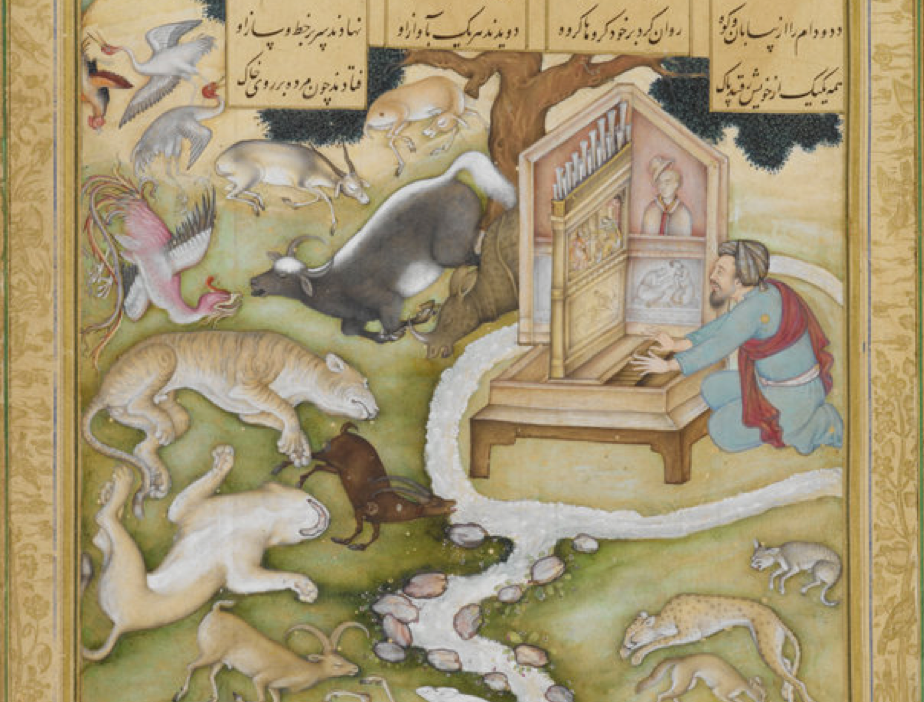 دد و دام را از بیابان و کوه روان کرد بر خود گروها گروه
دویدند هر یک بآواز او نهادند سر بر خط ساز او
همه یکیک از خویش رفتند پاک فتادند چون مرده بر روی خاک